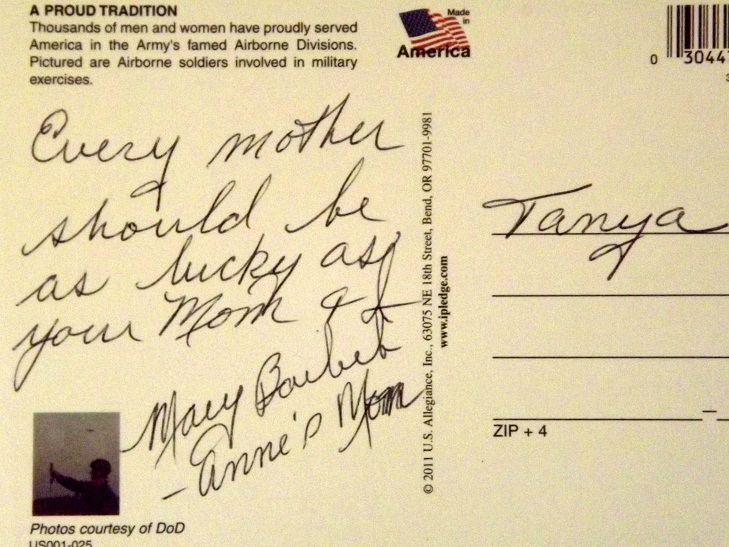 A PROUD TRADITION
Thousands of men and women have proudly served
America in the Army's famed Airborne Divisions.
Pictured are Airborne soldiers involved in military
exercises.
Made
in
America
0 3044
Every mother
should be
as lucky as
your Mom & I
Mary
- Anne's Mom
Photos courtesy of DoD
US001-025
© 2011 U.S. Allegiance, Inc., 63075 NE 18th Street, Bend, OR 97701-9981
www.ipledge.com
Tanya
ZIP + 4